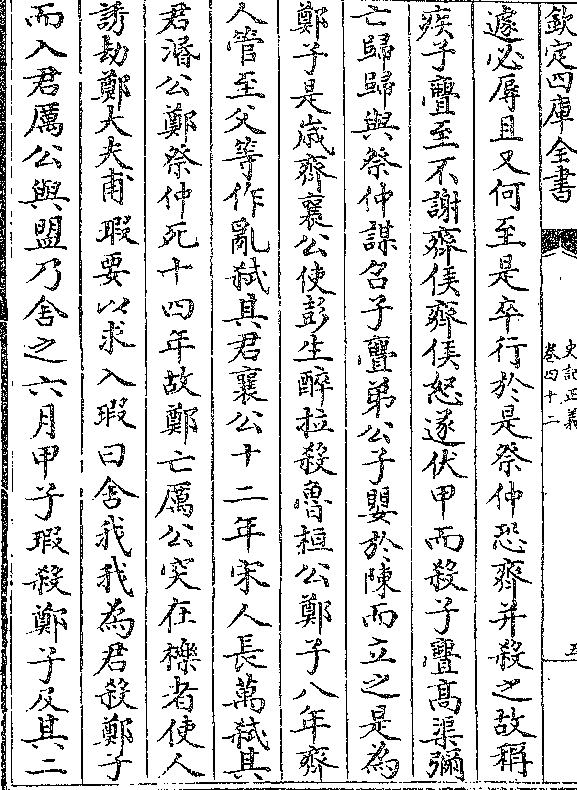 欽定四庫全書
史記正義
卷四十二
五
遽必辱且又何至是卒行於是祭仲恐齊并殺之故稱
疾子亹至不謝齊侯齊侯怒遂伏甲而殺子亹髙渠彌
亡歸歸與祭仲謀召子亹弟公子嬰於陳而立之是為
鄭子是嵗齊襄公使彭生醉拉殺魯桓公鄭子八年齊
人管至父等作亂弑其君襄公十二年宋人長萬弑其
君湣公鄭祭仲死十四年故鄭亡厲公突在櫟者使人
誘劫鄭大夫甫瑕要以求入瑕曰舍我我為君殺鄭子
而入君厲公與盟乃舍之六月甲子瑕殺鄭子及其二